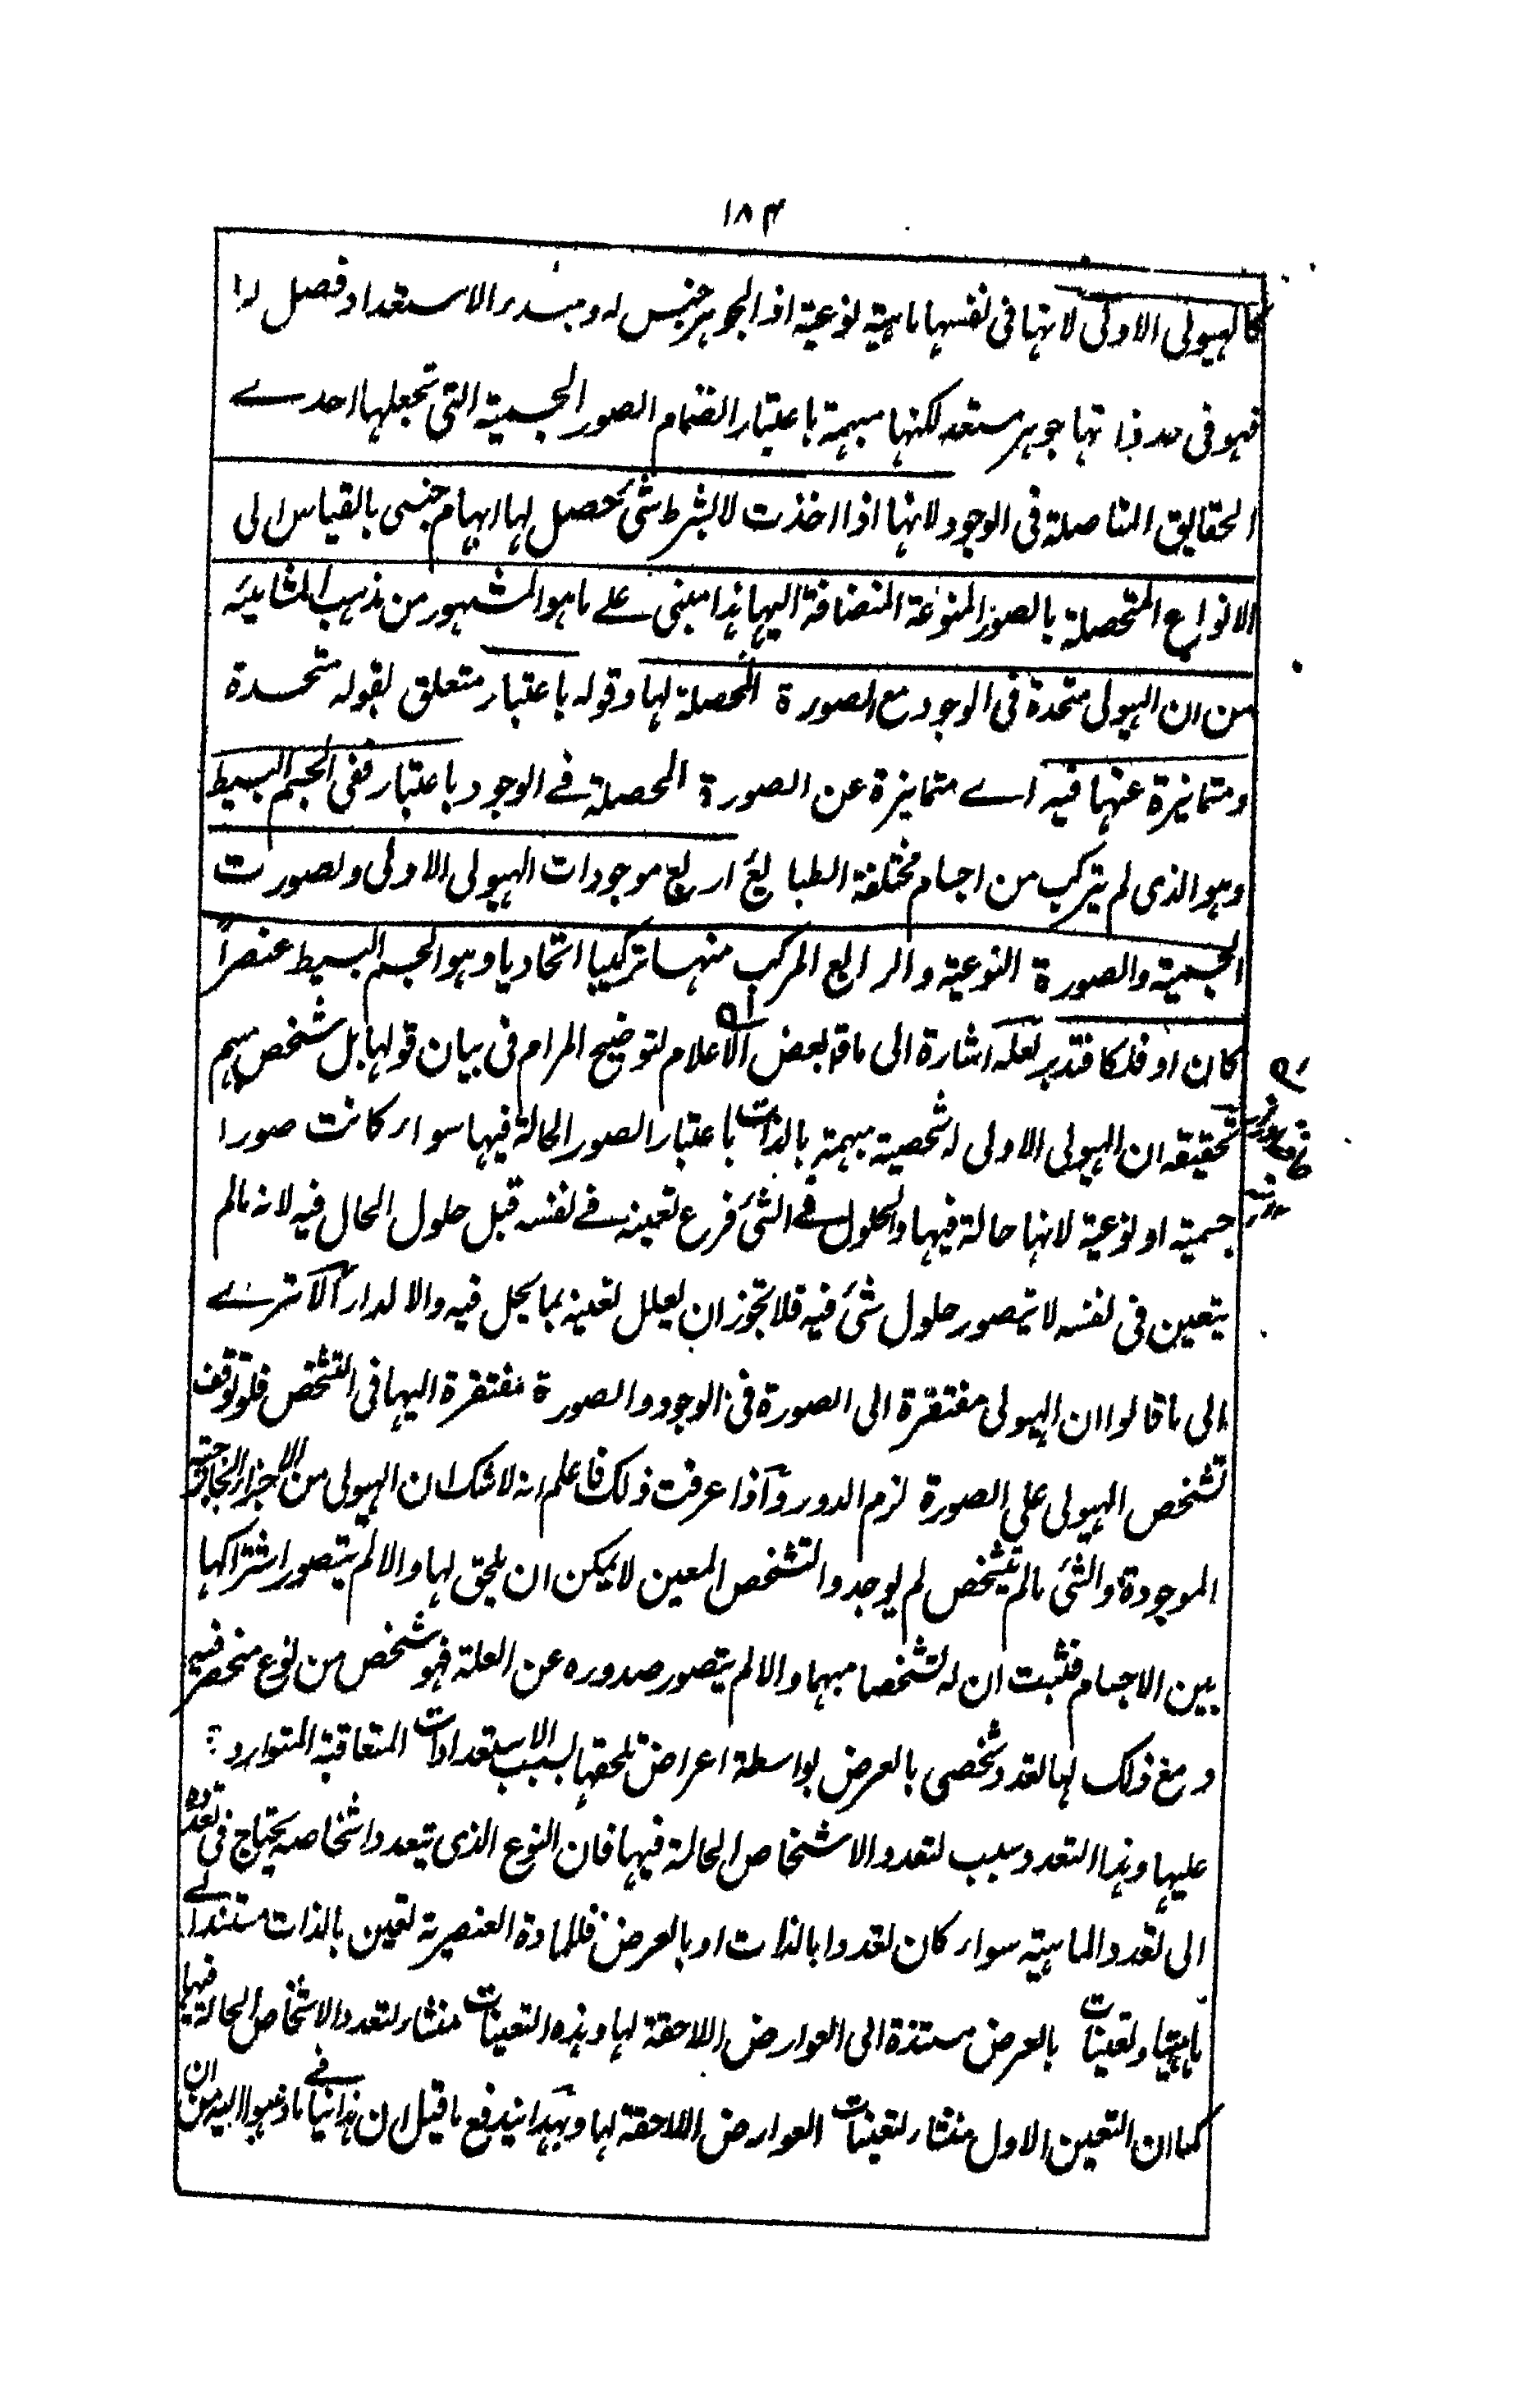 ۱۸۴
كالهيولى الاولى لانها فى نفسها ماهية نوعية اذ الجوهر جنس له ومبدء الاستعداد فصل لها
فهو فى حد ذاتها جوهر مستعد لكنها مبهمة باعتبار انضمام الصور الجسمية التى تجعلها احدے
الحقايق المتاصلة فى الوجود لانها اذا اخذت لا بشرط شئ يحصل لها ابهام جنسى بالقياس الى
الانواع المتحصلة بالصور المنوعة المنضافة اليها هذا مبنى علے ما هو المشهور من مذهب المشائية
من ان الهيولى متحدة فى الوجود مع الصورة المحصلة لها وقوله باعتبار متعلق بقوله متحدة
ومتمايزة عنها فيه اے متمايزة عن الصورة المحصلة فے الوجود باعتبار ففى الجسم البسيط
وهو الذى لم يتركب من اجسام مختلفة الطبايع اربع موجودات الهيولى الاولى والصورت
الجسمية والصورة النوعية والرابع المركب منها تركيبا اتحاديا وهو الجسم البسيط عنصراً
كان او فلكا فتدبر لعله اشارة الى ما قه بعض الاعلام لتوضيح المرام فى بيان قولها بل شخص مبهم
تحقيقه ان الهيولى الاولى له شخصية مبهمة بالذات باعتبار الصور الحالة فيها سواء كانت صورا
جسمية او نوعية لانها حالة فيها والحلول فے الشئ فرع تعينه فے نفسه قبل حلول الحال فيه لانه مالم
يتعين فى نفسه لا يتصور حلول شئ فيه فلا يجوز ان يعلل تعينه بما يحل فيه والا لدار الا ترے
الى ما قالوا ان الهيولى مفتقرة الى الصورة فى الوجود والصورة مفتقرة اليها فى التشخص فلو توقف
تشخص الهيولى على الصورة لزم الدور واذا عرفت ذلك فاعلم انه لا شك ان الهيولى من الاجزاء الخارجية
الموجودة والشئ مالم يتشخص لم يوجد والتشخص المعين لا يمكن ان يلحق لها والا لم يتصور اشتراكها
بين الاجسام فثبت ان له تشخصا مبهما والا لم يتصور صدوره عن العلة فهو شخص من نوع منحصر فيه
ومع ذلك لها تعدد شخصى بالعرض بواسطة اعراض تلحقها بسبب الاستعدادات المتعاقبة المتواردة
عليها وهذا التعدد سبب لتعدد الاشخاص الحالة فيها فان النوع الذى يتعدد اشخاصه يحتاج فى تعدده
الى تعدد الماهية سواء كان تعددا بالذات او بالعرض فللمادة العنصرية تعين بالذات مستندالے
ماهيتها وتعينات بالعرض مستندة الى العوارض اللاحقة لها وهذه التعينات منشاء لتعدد الاشخاص الحالة فيها
كما ان التعين الاول منشاء لتعينات العوارض اللاحقة لها وبهذا يندفع ما قيل ان هذا ينافے ما ذهبوا اليه من ان